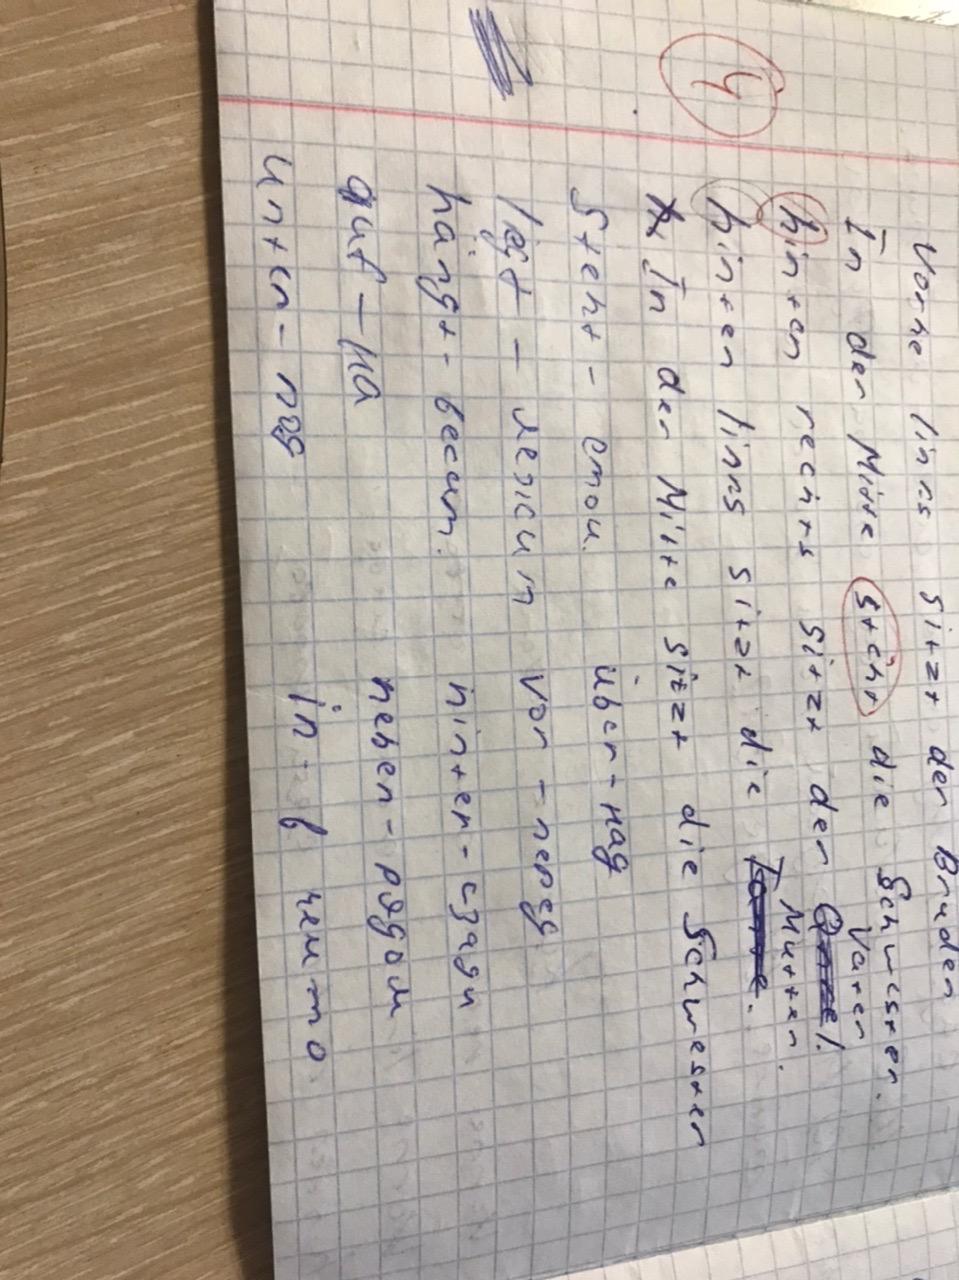 Vorne links sitzt der Bruder
In der Mitte steht die Schwester.
hinten rechts sitzt der Vater
4
hinten links sitzt die Mutter.
In der Mitte sitzt die Schwester
steht - стои. über - над
legt - лежит vor - перед
hängt - весит. hinter - сзади
auf - на neben - рядом
unten - под in - в чем то